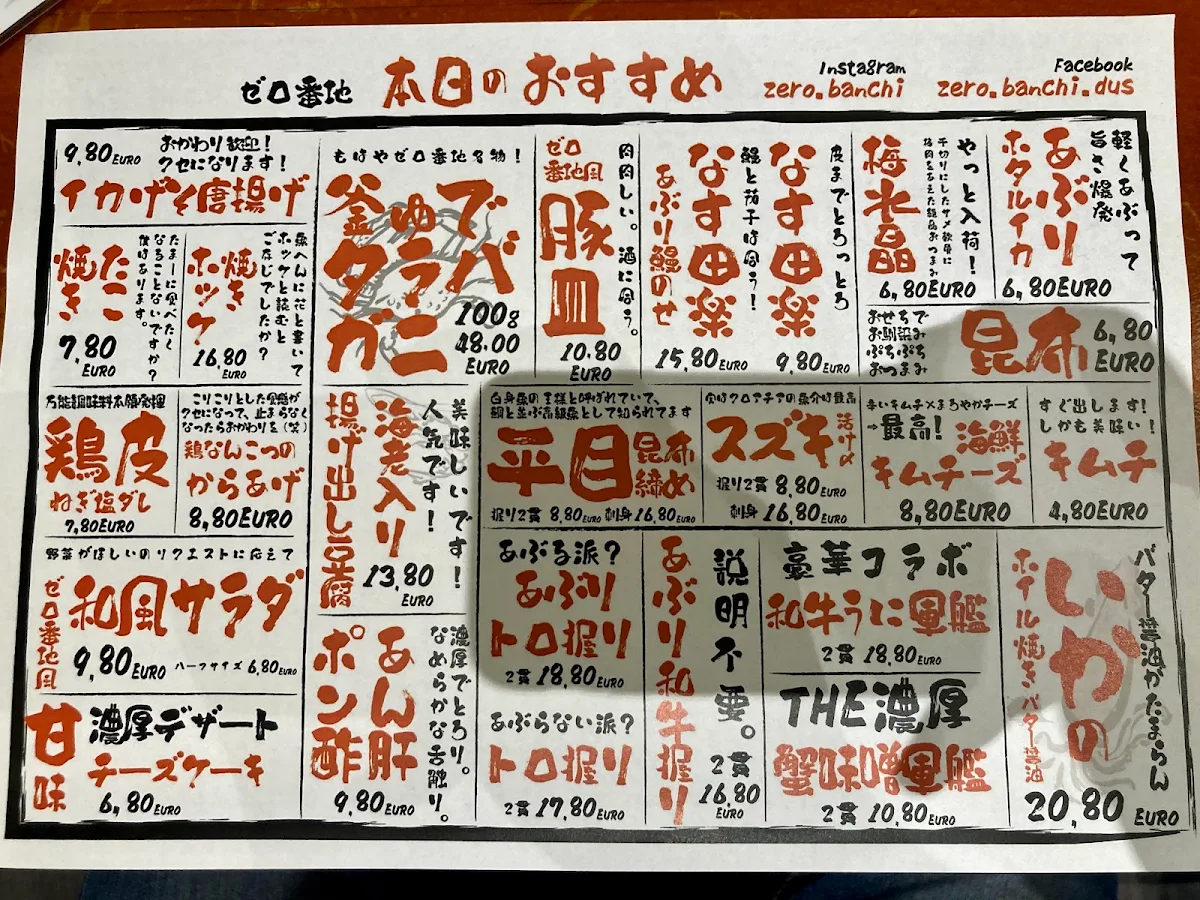 ゼロ番地 本日のおすすめ
Instagram
zero.banchi
Facebook
zero.banchi.dus
9,80 EURO
おかわり歓迎!
クセになります!
イカげそ唐揚げ
たこ
焼き
たまーに食べたく
なることないですか?
僕はあります。
7,80
EURO
焼き
ホッケ
魚へんに花と書いて
ホッケと読むと
ご存じでしたか?
16,80
EURO
もはやゼロ番地名物!
釜ゆで
タラバ
ガニ
100g
48.00
EURO
ゼロ
番地風
豚皿
肉肉しい。酒に合う。
10.80
EURO
なす田楽
あぶり鰻のせ
鰻と茄子は合う!
15,80 EURO
皮までとろっとろ
なす田楽
9,80 EURO
梅水晶
やっと入荷!
千切りにしたサメ軟骨に
梅肉をあえた超高級おつまみ
6,80EURO
軽くあぶって
旨さ爆発
あぶり
ホタルイカ
6,80EURO
おせちで
お馴染み
ぷちぷち
おつまみ
昆布
6,80
EURO
万能調味料本領発揮
鶏皮
ねぎ塩ダレ
7,80EURO
こりこりとした食感が
クセになって、止まらなく
なったらおかわりを(笑)
鶏なんこつの
からあげ
8,80EURO
美味しいです!
人気です!
海老入り
揚げ出し豆腐
13,80
EURO
白身魚の王様と呼ばれていて、
鯛と並ぶ高級魚として知られてます
平目 昆布
締め
握り2貫 8,80EURO 刺身 16,80EURO
実はクロアチアの魚介は最高
スズキ 活け〆
握り2貫 8,80EURO
刺身 16,80EURO
辛いキムチ×まろやかチーズ
→最高!
海鮮
キムチーズ
8,80EURO
すぐ出します!
しかも美味い!
キムチ
4,80EURO
野菜がほしいのリクエストに応えて
ゼロ番地風
和風サラダ
9,80 EURO ハーフサイズ 6,80EURO
甘味
濃厚デザート
チーズケーキ
6,80EURO
濃厚でとろり。
なめらかな舌触り。
あん肝
ポン酢
9,80 EURO
あぶる派?
あぶり
トロ握り
2貫 18,80 EURO
あぶらない派?
トロ握り
2貫 17,80 EURO
説明不要。
あぶり和牛握り
2貫
16,80
EURO
豪華コラボ
和牛うに軍艦
2貫 18,80 EURO
THE濃厚
蟹味噌軍艦
2貫 10,80 EURO
バター醤油がたまらん
いかの
ホイル焼きバター醤油
20,80 EURO